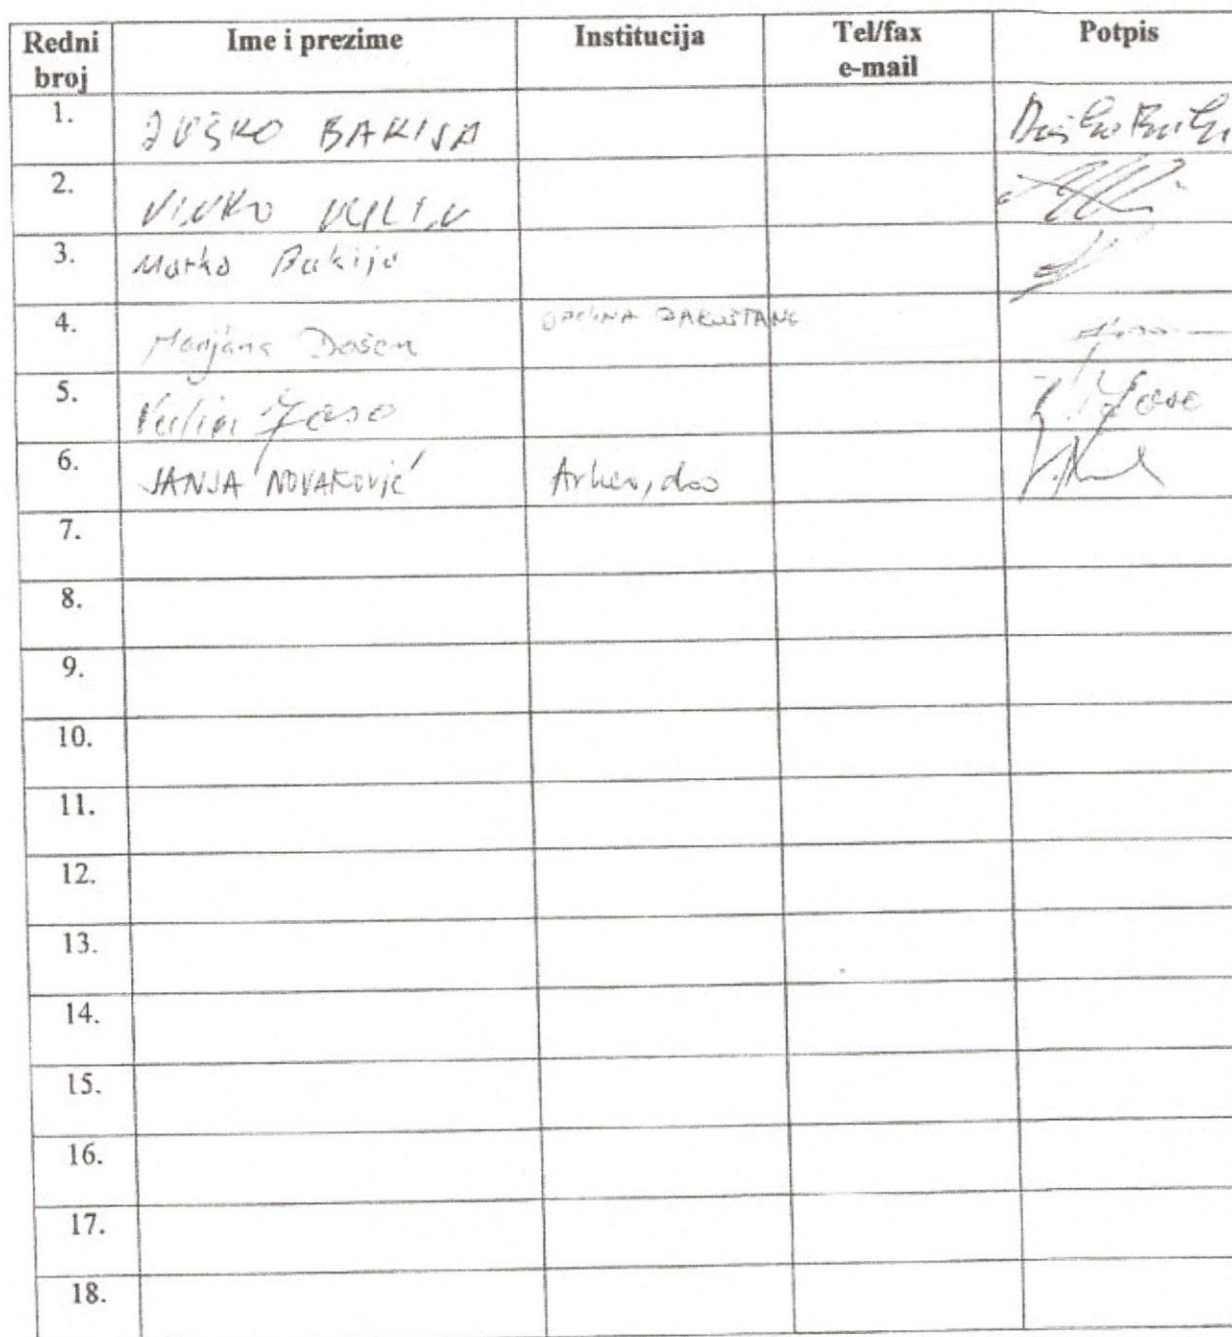 Redni broj Ime i prezime Institucija Tel/fax e-mail Potpis
1. DUŠKO BAKIJA Duško Bakija
2. VINKO VULIN
3. Marko Bakija
4. Marijana Došen OPĆINA PAKOŠTANE
5. Vulin Joso V. Joso
6. JANJA NOVAKOVIĆ
7.
8.
9.
10.
11.
12.
13.
14.
15.
16.
17.
18.